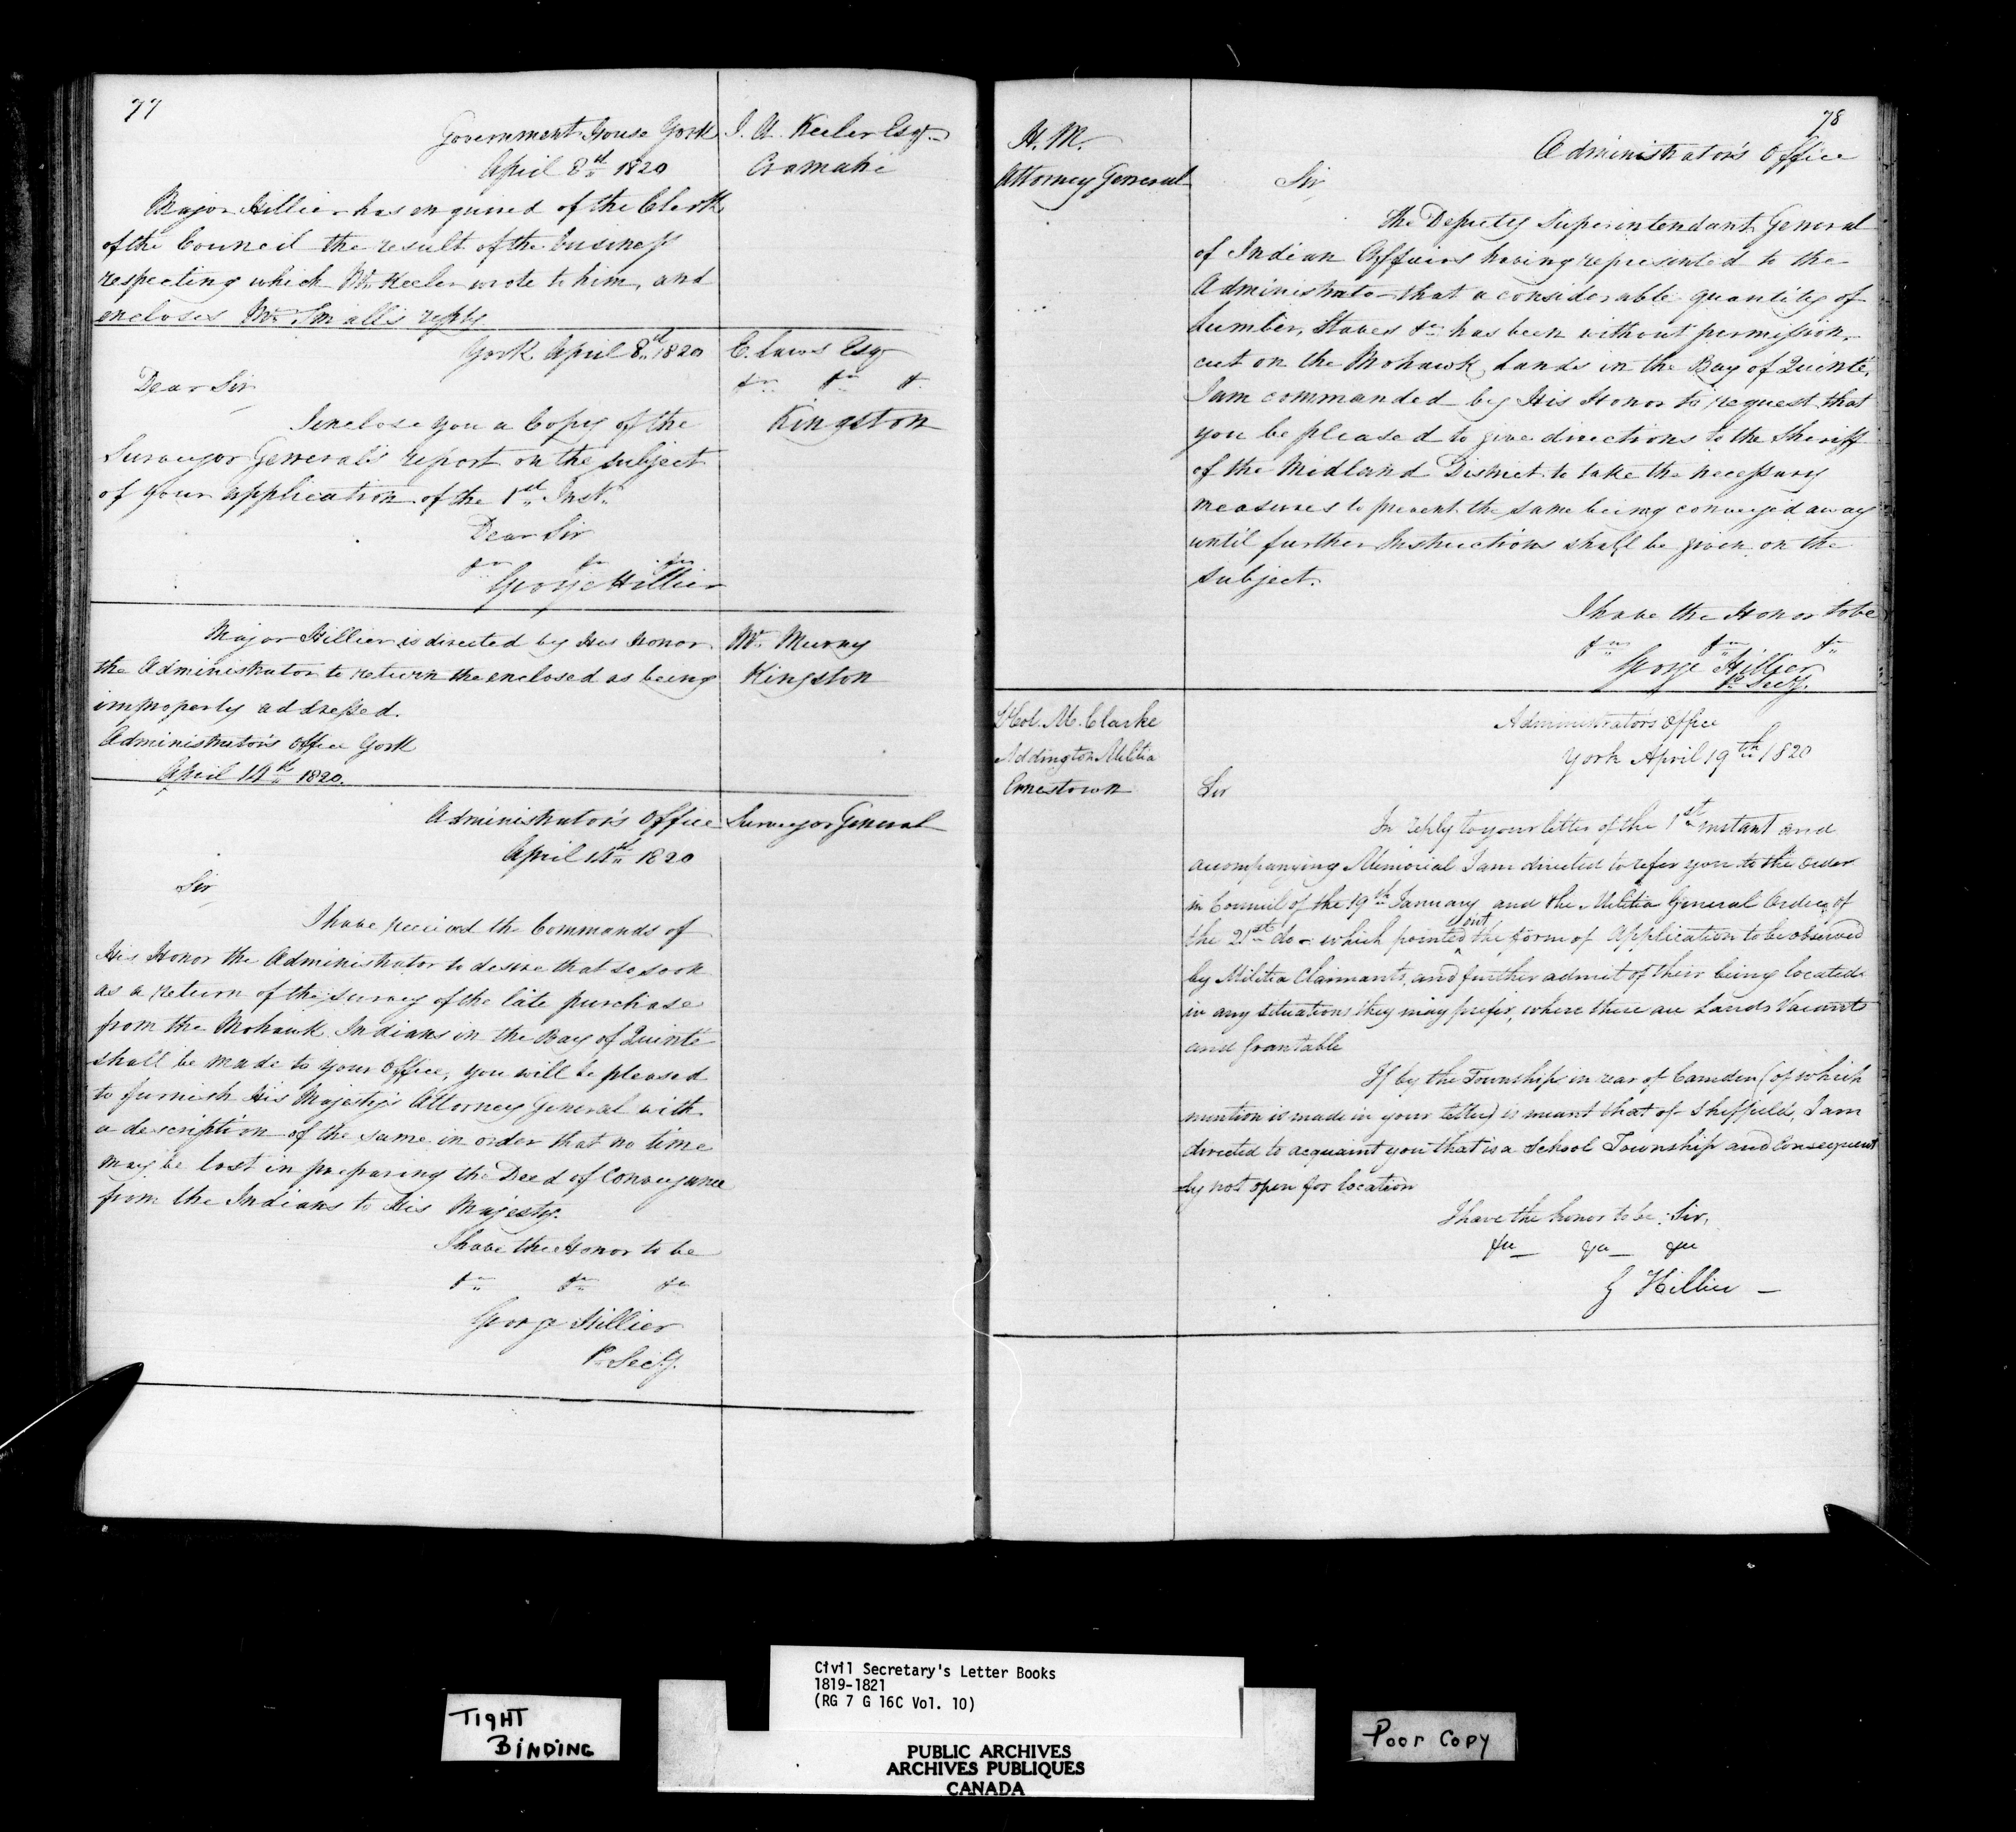 77
Government House York
April 8th 1820
J. A. Keeler Esqr
Cramahe
Major Hillier has enquired of the Clerk
of the Council the result of the business
respecting which Mr Keeler wrote to him, and
encloses Mr Small's reply
York April 8th 1820
C. Laws Esqr
&c &c &
Kingston
Dear Sir
I enclose you a Copy of the
Surveyor General's report on the subject
of your application of the 1st Inst.
Dear Sir
&c &c &c
George Hillier
Mr Murny
Kingston
Major Hillier is directed by His Honor
the Administrator to return the enclosed as being
improperly addressed.
Administrator's Office York
April 14th 1820.
Administrator's Office
April 14th 1820
Surveyor General
Sir
I have received the Commands of
His Honor the Administrator to desire that so soon
as a return of the survey of the late purchase
from the Mohawk Indians in the Bay of Quinté
shall be made to your Office, you will be pleased
to furnish His Majesty's Attorney General with
a description of the same in order that no time
may be lost in preparing the Deed of Conveyance
from the Indians to His Majesty.
I have the Honor to be
&c &c &c
George Hillier
P. Secy.
78
H. M.
Attorney General
Administrator's Office
Sir
The Deputy Superintendant General
of Indian Affairs having represented to the
Administrator that a considerable quantity of
Lumber, Staves &c has been without permission
cut on the Mohawk Lands in the Bay of Quinté,
I am commanded by His Honor to request that
you be pleased to give directions to the Sheriff
of the Midland District to take the necessary
measures to prevent the same being conveyed away
until further Instructions shall be given on the
subject.
I have the Honor to be
&c &c &c
George Hillier
P. Secy.
Lt Col. M. Clarke
Addington Militia
Ernestown
Administrators Office
York April 19th 1820
Sir
In reply to your letter of the 1st instant and
accompanying Memorial I am directed to refer you to the order
in Council of the 19th January and the Militia General Order of
the 21st do - which pointed out the form of Application to be observed
by Militia Claimants, and further admit of their being located
in any situations they may prefer, where there are Lands Vacant
and grantable
If by the Township in rear of Camden (of which
mention is made in your letter) is meant that of Sheffield, I am
directed to acquaint you that is a School Township and Consequent
ly not open for location
I have the honor to be, Sir,
&c &c &c
G Hillier
TIGHT
BINDING
Civil Secretary's Letter Books
1819-1821
(RG 7 G 16C Vol. 10)
PUBLIC ARCHIVES
ARCHIVES PUBLIQUES
CANADA
Poor Copy